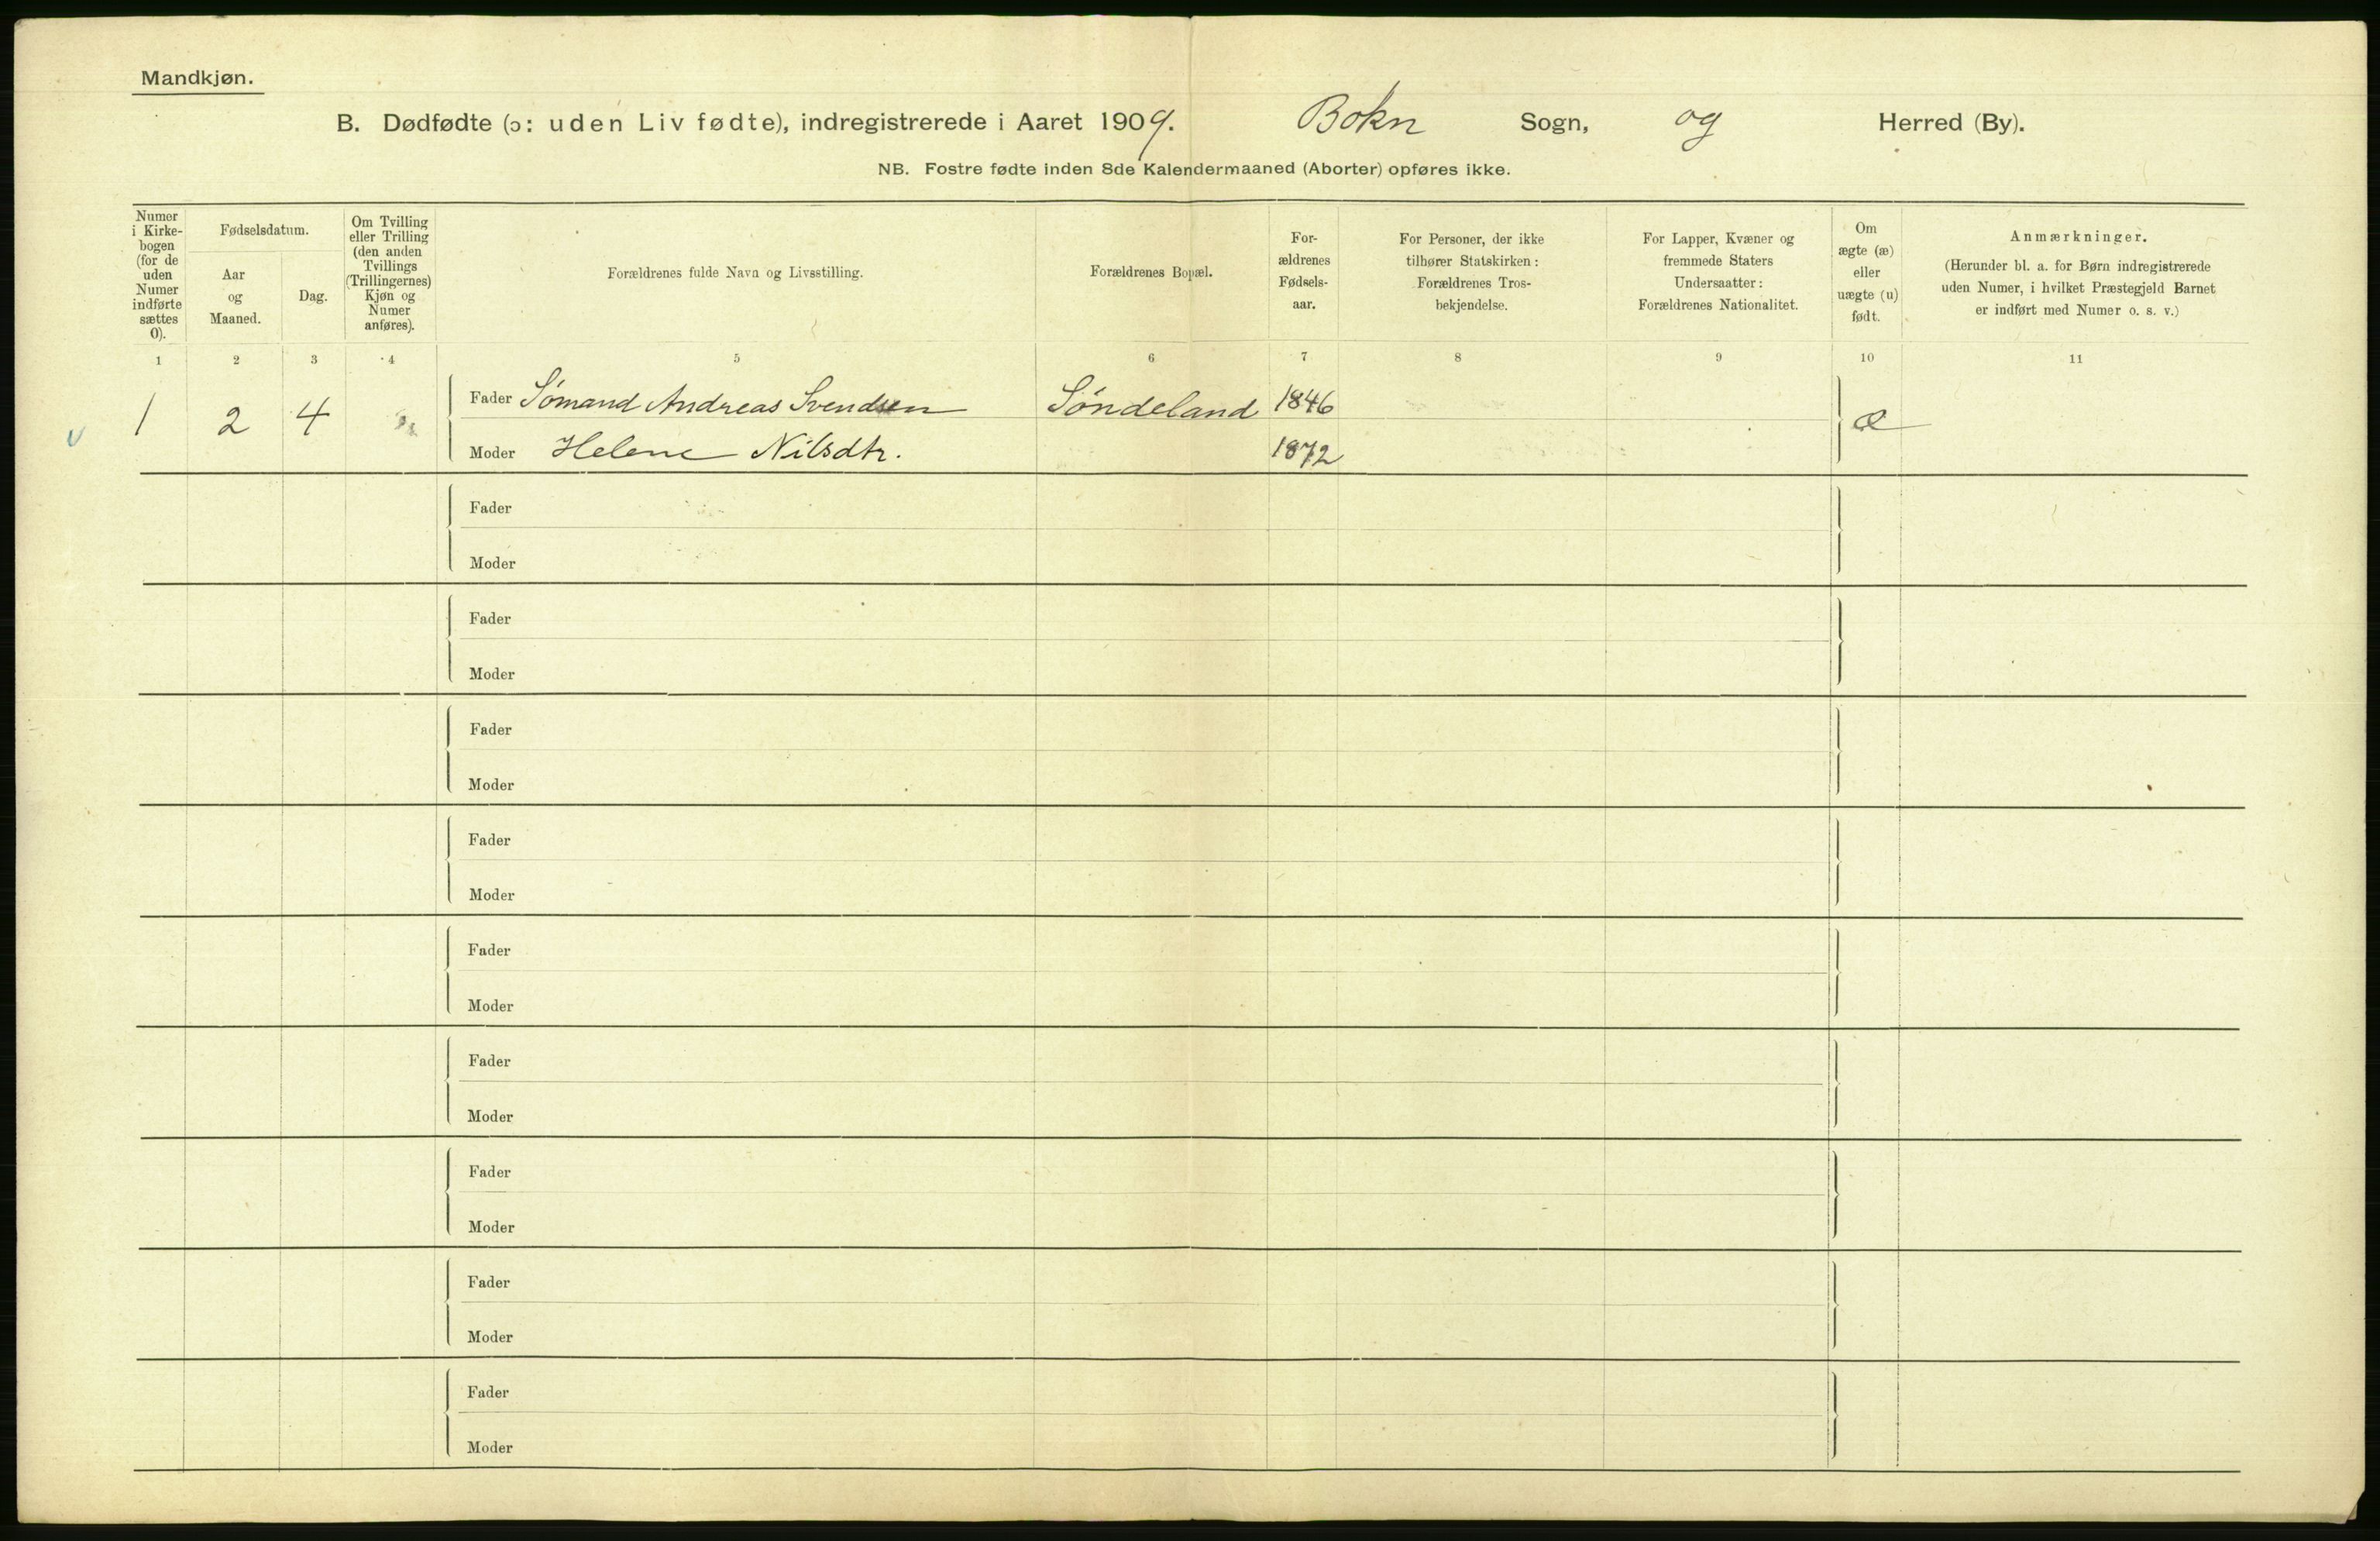 Mandkjøn.
B. Dødfødte (ɔ: uden Liv fødte), indregistrerede i Aaret 1909. Bokn Sogn, og Herred (By).
NB. Fostre fødte inden 8de Kalendermaaned (Aborter) opføres ikke.
Numer
i Kirke-
bogen
(for de
uden
Numer
indførte
sættes
0).
Fødselsdatum.
Aar
og
Maaned.
Dag.
Om Tvilling
eller Trilling
(den anden
Tvillings
(Trillingernes)
Kjøn og
Numer
anføres).
Forældrenes fulde Navn og Livsstilling.
Forældrenes Bopæl.
For-
ældrenes
Fødsels-
aar.
For Personer, der ikke
tilhører Statskirken:
Forældrenes Tros-
bekjendelse.
For Lapper, Kvæner og
fremmede Staters
Undersaatter:
Forældrenes Nationalitet.
Om
ægte (æ)
eller
uægte (u)
født.
Anmærkninger.
(Herunder bl. a. for Børn indregistrerede
uden Numer, i hvilket Præstegjeld Barnet
er indført med Numer o. s. v.)
1 2 3 4 5 6 7 8 9 10 11
1 2 4 Fader Sömand Andreas Svendsen Söndeland 1846 æ
Moder Helene Nilsdtr. 1872
Fader
Moder
Fader
Moder
Fader
Moder
Fader
Moder
Fader
Moder
Fader
Moder
Fader
Moder
Fader
Moder
Fader
Moder